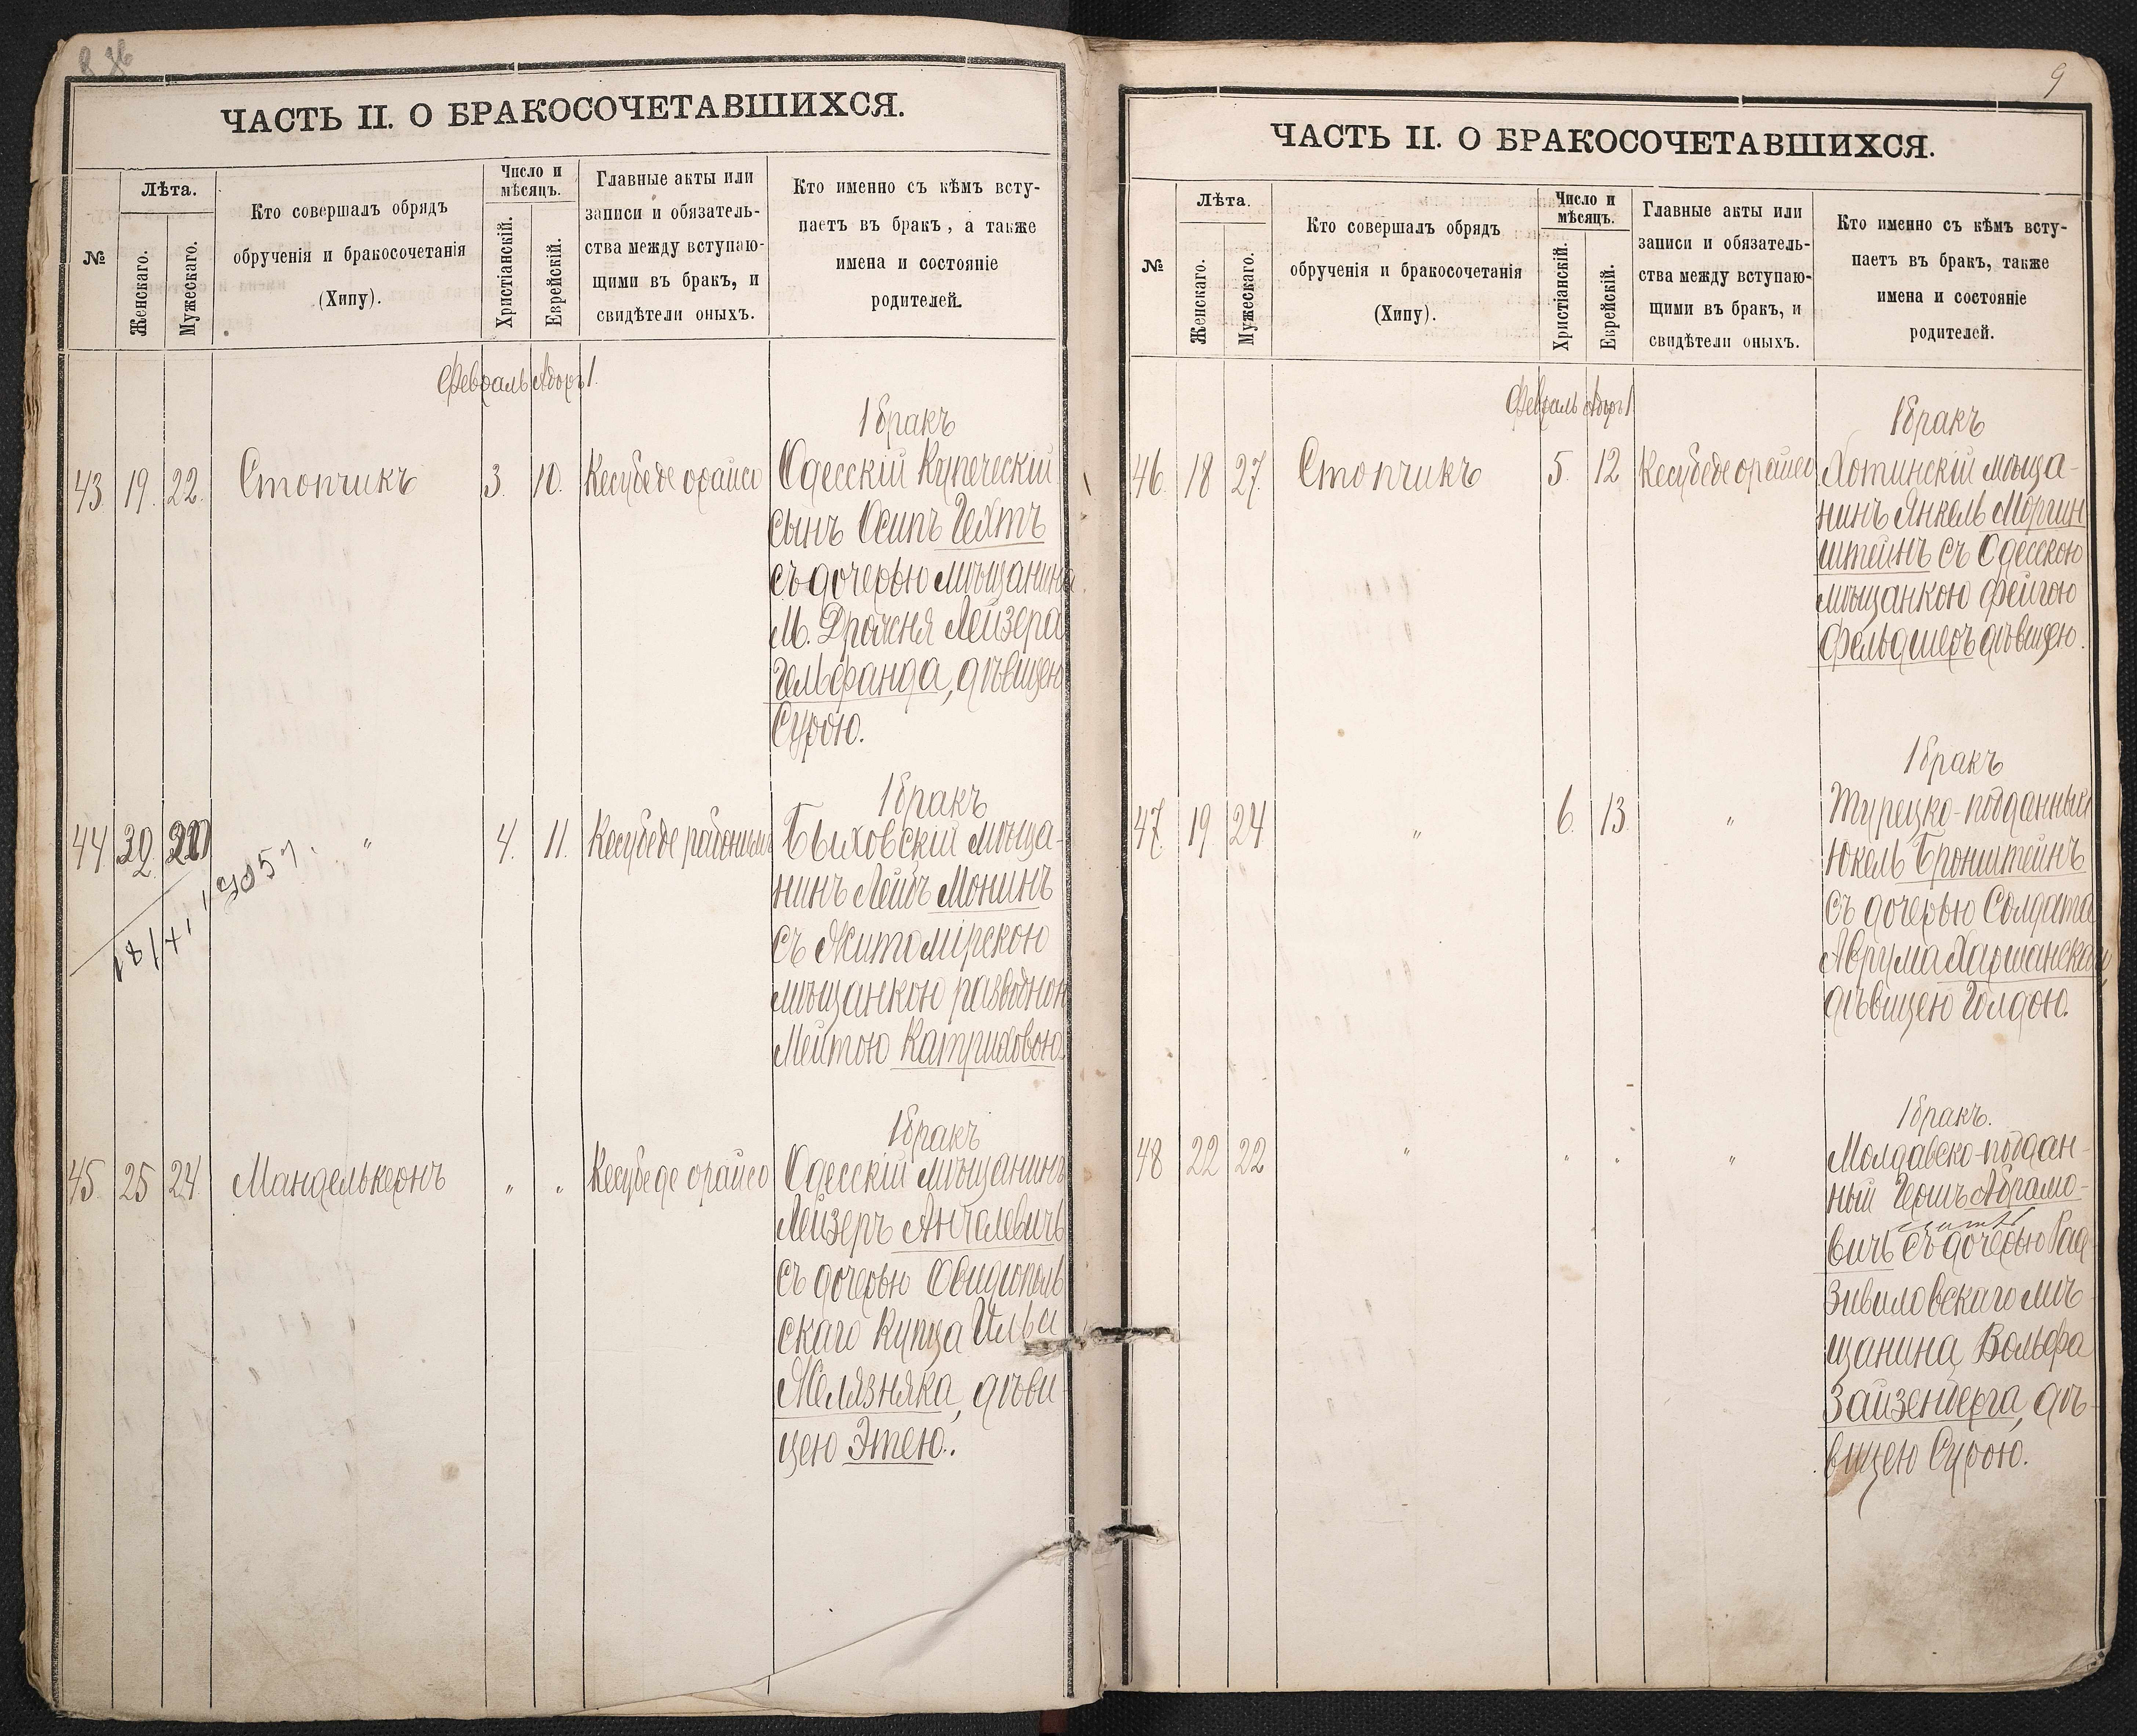 ЧАСТЬ II. О БРАКОСОЧЕТАВШИХСЯ.
№
Лѣта.
Женскаго.
Мужескаго.
Кто совершалъ обрядъ
обрученія и бракосочетанія
(Хипу).
Число и
мѣсяцъ.
Христіанскій.
Еврейскій.
Главные акты или
записи и обязатель-
ства между вступаю-
щими въ бракъ, и
свидѣтели оныхъ.
Кто именно съ кѣмъ всту-
паетъ въ бракъ, а также
имена и состояніе
родителей.
Февраль Адоръ 1.
1 бракъ
43. 19. 22. Стопчикъ 3. 10. Кесубеде орайсо Одесскій Купеческій
сынъ Осипъ Гехтъ
съ дочерью мѣщанина
М. Дрожня Лейзера
Гельфанда, дѣвицею
Сурою.
1 бракъ
44 39 " 4. 11. Кесубеде Быховскій мѣща-
нинъ Лейбъ Монинъ
съ Житомірскою
мѣщанкою разводною
Мейтою Катриховою.
1 бракъ
45. 25 24 Манделькернъ " " Кесубеде орайсо Одесскій мѣщанинъ
Лейзеръ Анчелевичъ
съ дочерью Овидіополь
скаго Купца
Желязняка, дѣви-
цею Этею.
9
ЧАСТЬ II. О БРАКОСОЧЕТАВШИХСЯ.
№
Лѣта.
Женскаго.
Мужескаго.
Кто совершалъ обрядъ
обрученія и бракосочетанія
(Хипу).
Число и
мѣсяцъ.
Христіанскій.
Еврейскій.
Главные акты или
записи и обязатель-
ства между вступаю-
щими въ бракъ, и
свидѣтели оныхъ.
Кто именно съ кѣмъ всту-
паетъ въ бракъ, также
имена и состояніе
родителей.
Февраль Адоръ 1
1 бракъ
46. 18 27. Стопчикъ 5. 12 Кесубеде орайсо Хотинскій мѣща-
нинъ Янкель Моргин
штейнъ съ Одесскою
мѣщанкою Фейгою
Фельдшеръ дѣвицею.
1 бракъ
47. 19 24 " 6. 13. " Турецко-подданный
Юкель Бронштейнъ
съ дочерью Солдата
Аврума Харшанскаго
дѣвицею Голдою.
1 бракъ.
48 22 22 " " " " Молдавско-поддан-
ный Гершъ Абрамо-
вичъ съ дочерью Рад-
зивиловскаго мѣ-
щанина Вольфа
Зайзенберга, дѣ-
вицею Сурою.